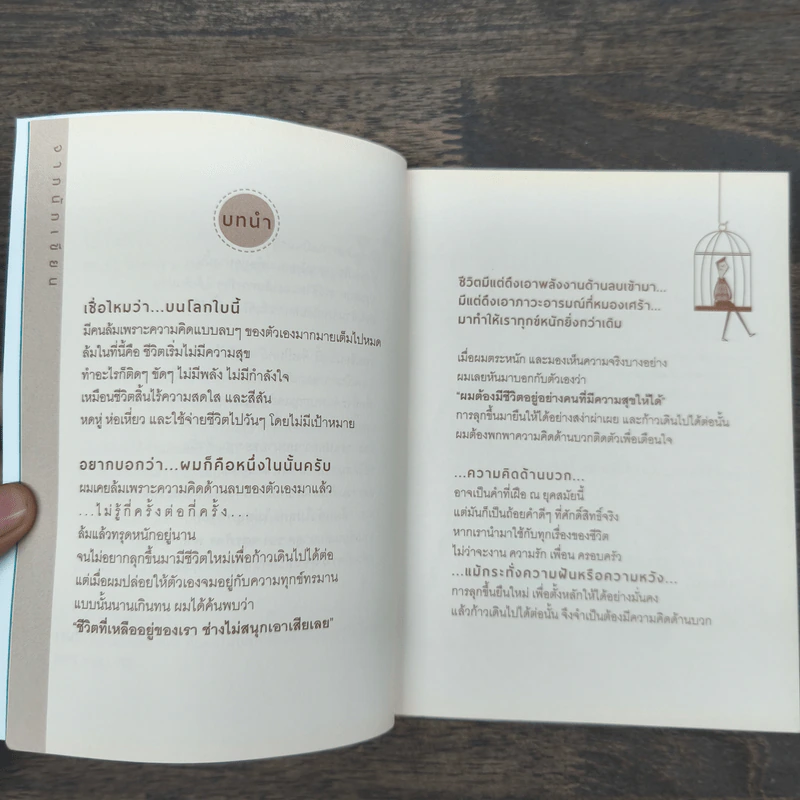 จากนักเขียน
บทนำ
เชื่อไหมว่า...บนโลกใบนี้
มีคนล้มเพราะความคิดแบบลบๆ ของตัวเองมากมายเต็มไปหมด
ล้มในที่นี้คือ ชีวิตเริ่มไม่มีความสุข
ทำอะไรก็ติดๆ ขัดๆ ไม่มีพลัง ไม่มีกำลังใจ
เหมือนชีวิตสิ้นไร้ความสดใส และสีสัน
หดหู่ ห่อเหี่ยว และใช้จ่ายชีวิตไปวันๆ โดยไม่มีเป้าหมาย
อยากบอกว่า...ผมก็คือหนึ่งในนั้นครับ
ผมเคยล้มเพราะความคิดด้านลบของตัวเองมาแล้ว
...ไม่รู้กี่ครั้งต่อกี่ครั้ง...
ล้มแล้วทรุดหนักอยู่นาน
จนไม่อยากลุกขึ้นมามีชีวิตใหม่เพื่อก้าวเดินไปได้ต่อ
แต่เมื่อผมปล่อยให้ตัวเองจมอยู่กับความทุกข์ทรมาน
แบบนั้นนานเกินทน ผมได้ค้นพบว่า
"ชีวิตที่เหลืออยู่ของเรา ช่างไม่สนุกเอาเสียเลย"
ชีวิตมีแต่ดึงเอาพลังงานด้านลบเข้ามา...
มีแต่ดึงเอาภาวะอารมณ์ที่หมองเศร้า...
มาทำให้เราทุกข์หนักยิ่งกว่าเดิม
เมื่อผมตระหนัก และมองเห็นความจริงบางอย่าง
ผมเลยหันมาบอกกับตัวเองว่า
"ผมต้องมีชีวิตอยู่อย่างคนที่มีความสุขให้ได้"
การลุกขึ้นมายืนให้ได้อย่างสง่าผ่าเผย และก้าวเดินไปได้ต่อนั้น
ผมต้องพกพาความคิดด้านบวกติดตัวเพื่อเตือนใจ
...ความคิดด้านบวก...
อาจเป็นคำที่เฝือ ณ ยุคสมัยนี้
แต่มันก็เป็นถ้อยคำดีๆ ที่ศักดิ์สิทธิ์จริง
หากเรานำมาใช้กับทุกเรื่องของชีวิต
ไม่ว่าจะงาน ความรัก เพื่อน ครอบครัว
...แม้กระทั่งความฝันหรือความหวัง...
การลุกขึ้นยืนใหม่ เพื่อตั้งหลักให้ได้อย่างมั่นคง
แล้วก้าวเดินไปได้ต่อนั้น จึงจำเป็นต้องมีความคิดด้านบวก